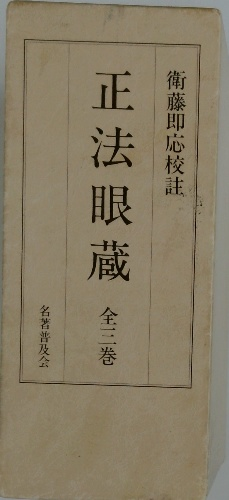 衛藤即応校註
正法眼蔵
全三巻
名著普及会